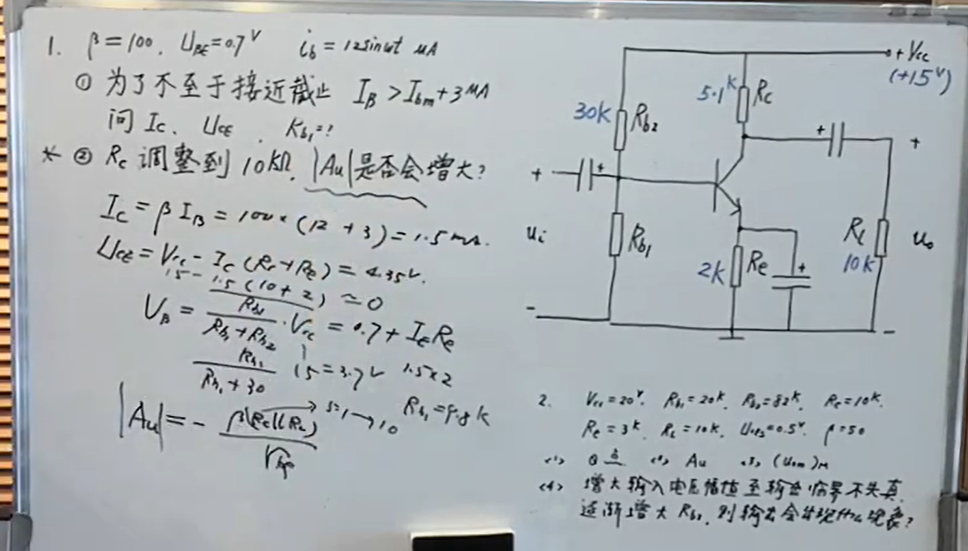 1. β=100. U_BE=0.7V i_b=12sinωt μA
① 为了不至于接近截止 I_B>I_bm+3μA
问 I_C、U_CE、R_b1=?
* ② R_C 调整到 10kΩ, |Au|是否会增大?
I_C=βI_B=100×(12+3)=1.5mA.
U_CE=V_CC-I_C(R_C+R_e)=4.35V.
15-1.5(10+2)≃0
V_B=R_b1/(R_b1+R_b2)·V_CC=0.7+I_E R_e
R_b1/(R_b1+30) 15=3.7V 1.5×2
R_b1=9.8k
|Au|=-β(R_C//R_L)/r_be 5.1→10
+V_CC
(+15V)
30K R_b2
5.1K R_C
+
+ +
+
u_i
R_b1
2K R_e
+
R_L
10K
u_o
-
-
2. V_CC=20V. R_b1=20K. R_b2=82K. R_C=10K.
R_e=3K. R_L=10K. β=50
<1> Q点 <2> Au <3> (U_om)_M
<4> 增大输入电压幅值至输出临界不失真,
逐渐增大 R_b1, 则输出会出现什么现象?